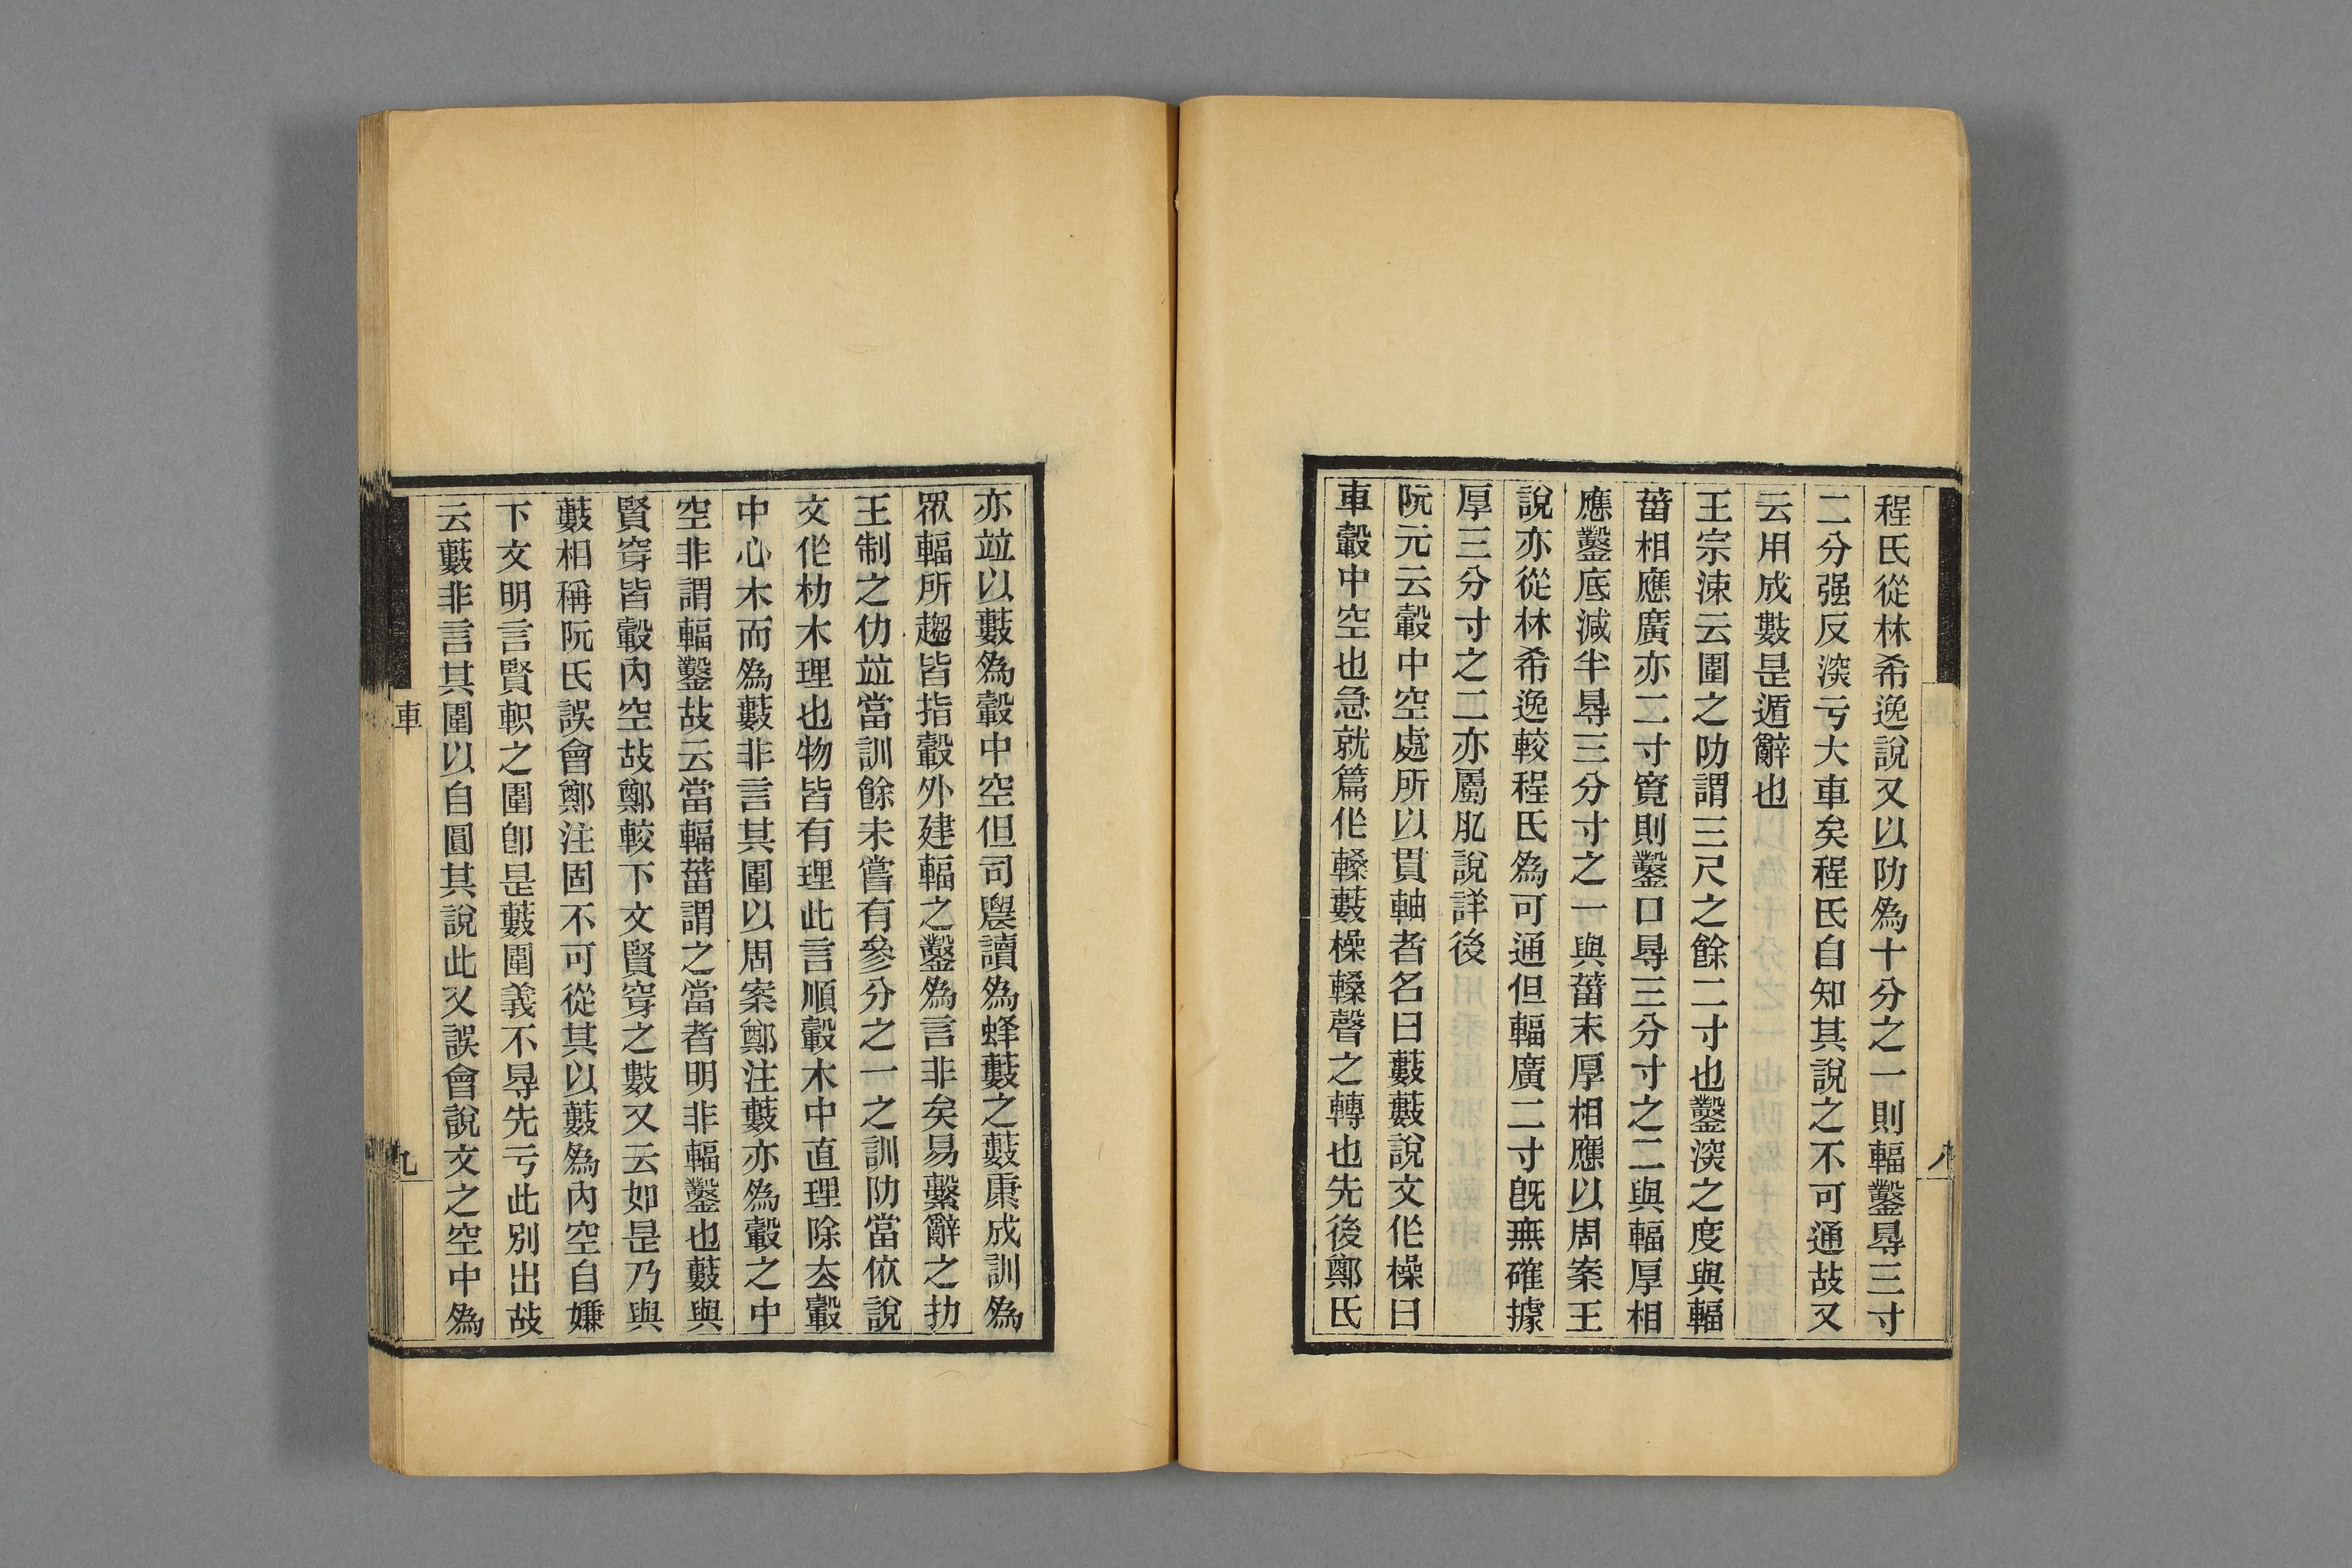 程氏從林希逸說又以阞爲十分之一則輻鑿㝵三寸
二分强反湥亏大車矣程氏自知其說之不可通故又
云用成數是遁辭也
王宗涑云圍之阞謂三尺之餘二寸也鑿湥之度與輻
菑相應廣亦二寸寬則鑿口㝵三分寸之二與輻厚相
應鑿底減半㝵三分寸之一與菑末厚相應以周案王
說亦從林希逸較程氏爲可通但輻廣二寸旣無確據
厚三分寸之二亦屬肊說詳後
阮元云轂中空處所以貫軸者名曰藪藪說文作橾曰
車轂中空也急就篇作轑藪橾轑聲之轉也先後鄭氏
八
亦竝以藪爲轂中空但司農讀爲蜂藪之藪康成訓爲
眾輻所趨皆指轂外建輻之鑿爲言非矣易繫辭之扐
王制之仂竝當訓餘未嘗有參分之一之訓阞當依說
文作朸木理也物皆有理此言順轂木中直理除去轂
中心木而爲藪非言其圍以周案鄭注藪亦爲轂之中
空非謂輻鑿故云當輻菑謂之當者明非輻鑿也藪與
賢穿皆轂內空故鄭較下文賢穿之數又云如是乃與
藪相稱阮氏誤會鄭注固不可從其以藪爲內空自嫌
下文明言賢軹之圍卽是藪圍義不㝵先亏此別出故
云藪非言其圍以自圓其說此又誤會說文之空中爲
車
九